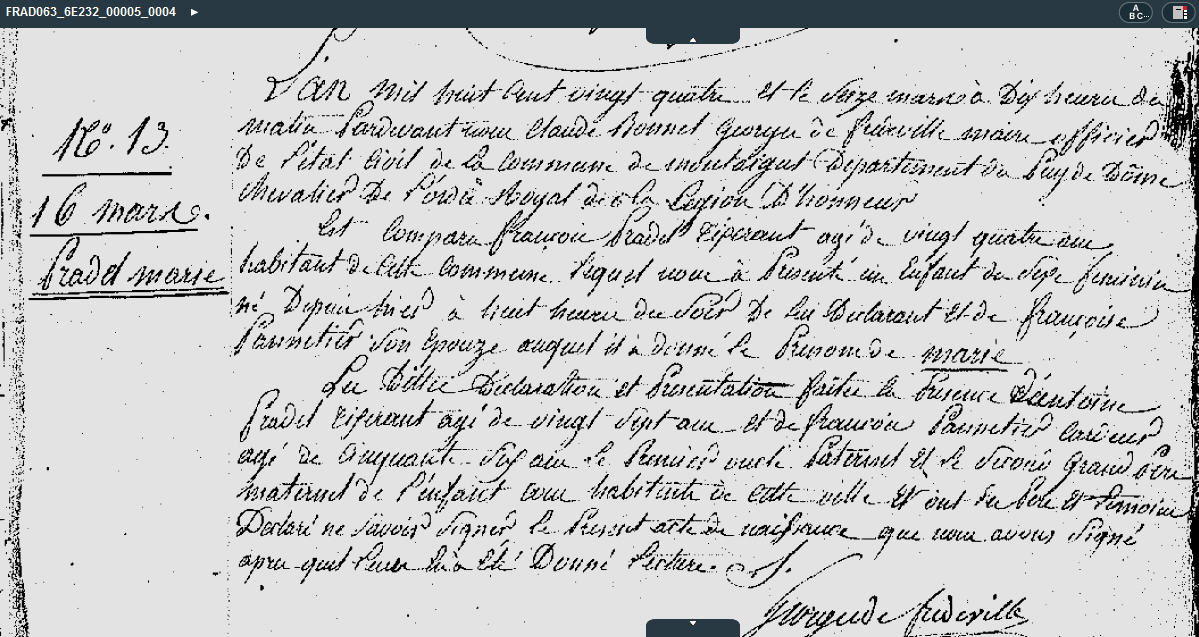 FRAD063_6E232_00005_0004
A
BC...
N.o 13.
16 mars.
Pradel marie
L'an mil huit Cent vingt quatre et le Seize mars à Dix heures du
matin Pardevant nous Claude Bonnet Georgue de frédeville maire officier
De l'état Civil de la Commune de montaigut Département du Puy de Dôme
Chevalier De l'ordre Royal de la Légion D'honneur
Est Comparu françois Pradel Tixerant agé de vingt quatre ans
habitant de Cette Commune lequel nous à Présenté un Enfant du Sexe féminin
né Depuis hier à huit heures du Soir De lui Déclarant Et de françoise
Parmetier Son Epouze auquel il à donné le Prénom de marie
Les Dittes Déclaration et Présentation faites En Présence D'antoine
Pradel Tixerant agé de vingt Sept ans et de françois Parmetier
agé de Cinquante Six ans le Premier oncle Paternel et le Second Grand Père
maternel de l'enfant tous habitants de Cette ville Et ont les Père et Témoins
Déclaré ne Savoir Signer le Présent acte de naissance que nous avons Signé
après quil Leur En à Eté Donné Lecture.
George de frédeville